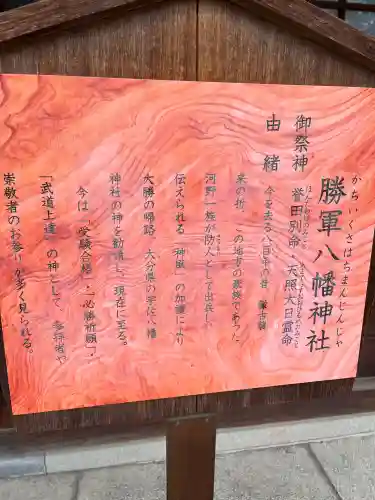 勝軍八幡神社
かちいくさはちまんじんじゃ
御祭神 誉田別命・天照大日霊命
由緒 今を去る八百年の昔 蒙古襲
来の折、この地方の豪族であった
河野一族が防人として出兵し、
伝えられる「神風」の加護により
大勝の帰路、大分県の宇佐八幡
神社の神を勧請し、現在に至る。
今は、「受験合格」・「必勝祈願」・
「武道上達」の神として、参拝者や
崇敬者のお参りが多く見られる。